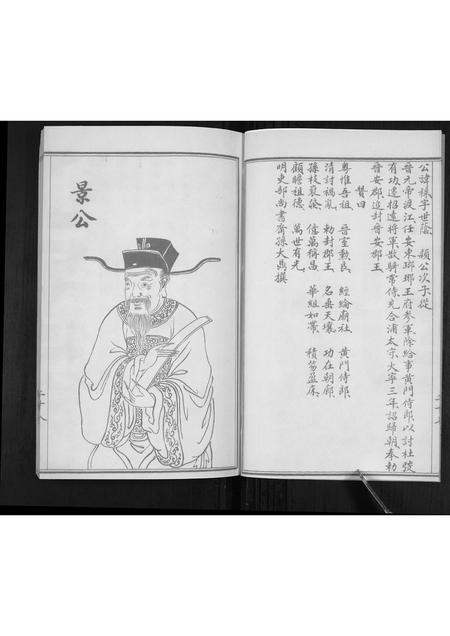 公諱祿字世蔭 頴公次子從
晉元帝渡江任安東瑯琊王府參軍除給事黃門侍郎以討杜弢
有功遷招遠將軍散騎常侍充合浦太守大寧三年詔歸朝奉勅
晉安郡追封晉安郡王
贊曰
粵惟吾祖 晉室勳良 經綸廟社 黃門侍郎
清討禍亂 勅封郡王 名垂天壤 功在朝廊
孫枝衮衮 億萬稱昌 華組如帶 積笏盈床
顧瞻祖德 萬世有光
明吏部尚書裔孫大 撰
景公